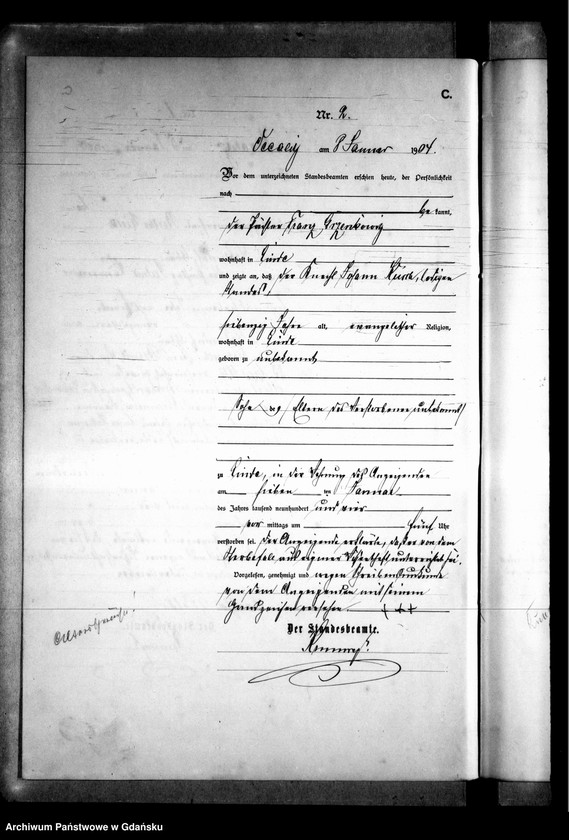 C.
Nr. 2.
am 8 Januar 1904.
Vor dem unterzeichneten Standesbeamten erschien heute, der Persönlichkeit
nach
be kannt,
der Pächter Franz
wohnhaft in Linde
und zeigte an, daß der Knecht Johann ledigen
Standes,
siebenzig Jahre alt, evangelischer Religion,
wohnhaft in Linde
geboren zu unbekannt
Sohn Eltern des Verstorbenen unbekannt
zu Linde, in der Wohnung des Anzeigenden
am sieben ten Januar
des Jahres tausend neunhundert und vier
vor mittags um fünf Uhr
verstorben sei. Der Anzeigende erklärte, daß er von dem
Sterbefalle aus eigener Wissenschaft unterrichtet sei.
Vorgelesen, genehmigt und wegen Schreibensunkunde
von dem Anzeigenden mit seinem
Handzeichen versehen +++
Der Standesbeamte.
Archiwum Państwowe w Gdańsku